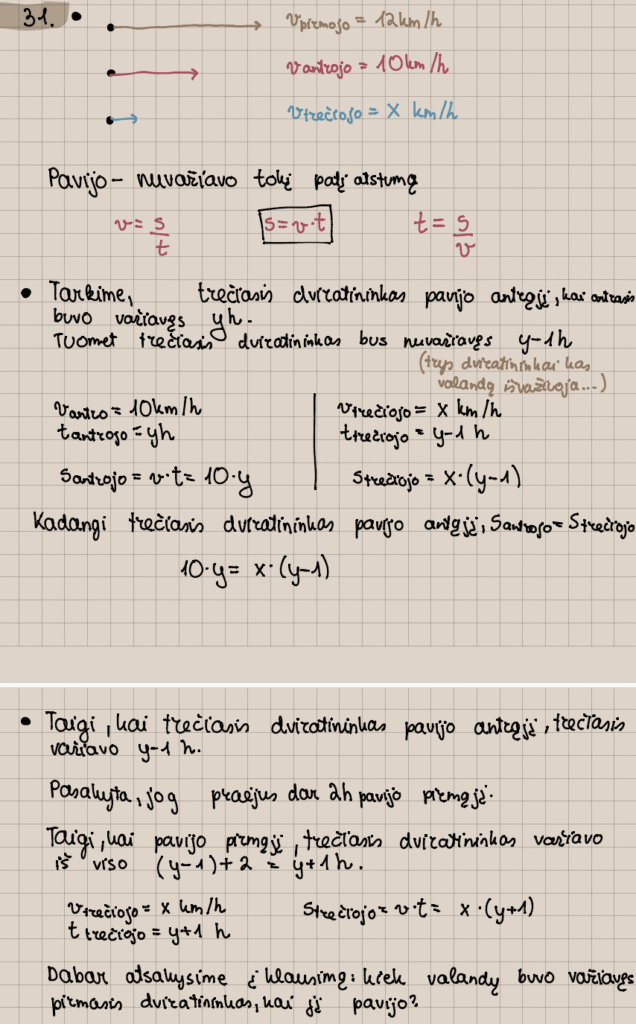 31. • v pirmojo = 12 km/h
v antrojo = 10 km/h
v trečiojo = x km/h
Pavijo – nuvažiavo tokį patį atstumą
v = s/t s = v·t t = s/v
• Tarkime, trečiasis dviratininkas pavijo antrąjį, kai antrasis
buvo važiavęs y h.
Tuomet trečiasis dviratininkas bus nuvažiavęs y–1 h
(trys dviratininkai kas
valandą išvažiuoja...)
v antro = 10 km/h
t antrojo = y h
s antrojo = v·t = 10·y
v trečiojo = x km/h
t trečiojo = y–1 h
s trečiojo = x·(y–1)
Kadangi trečiasis dviratininkas pavijo antąjį, s antrojo = s trečiojo
10·y = x·(y–1)
• Taigi, kai trečiasis dviratininkas pavijo antrąjį, trečiasis
važiavo y–1 h.
Pasakyta, jog praėjus dar 2h pavijo pirmąjį.
Taigi, kai pavijo pirmąjį, trečiasis dviratininkas važiavo
iš viso (y–1)+2 = y+1 h.
v trečiojo = x km/h
t trečiojo = y+1 h
s trečiojo = v·t = x·(y+1)
Dabar atsakysime į klausimą: kiek valandų buvo važiavęs
pirmasis dviratininkas, kai jį pavijo?